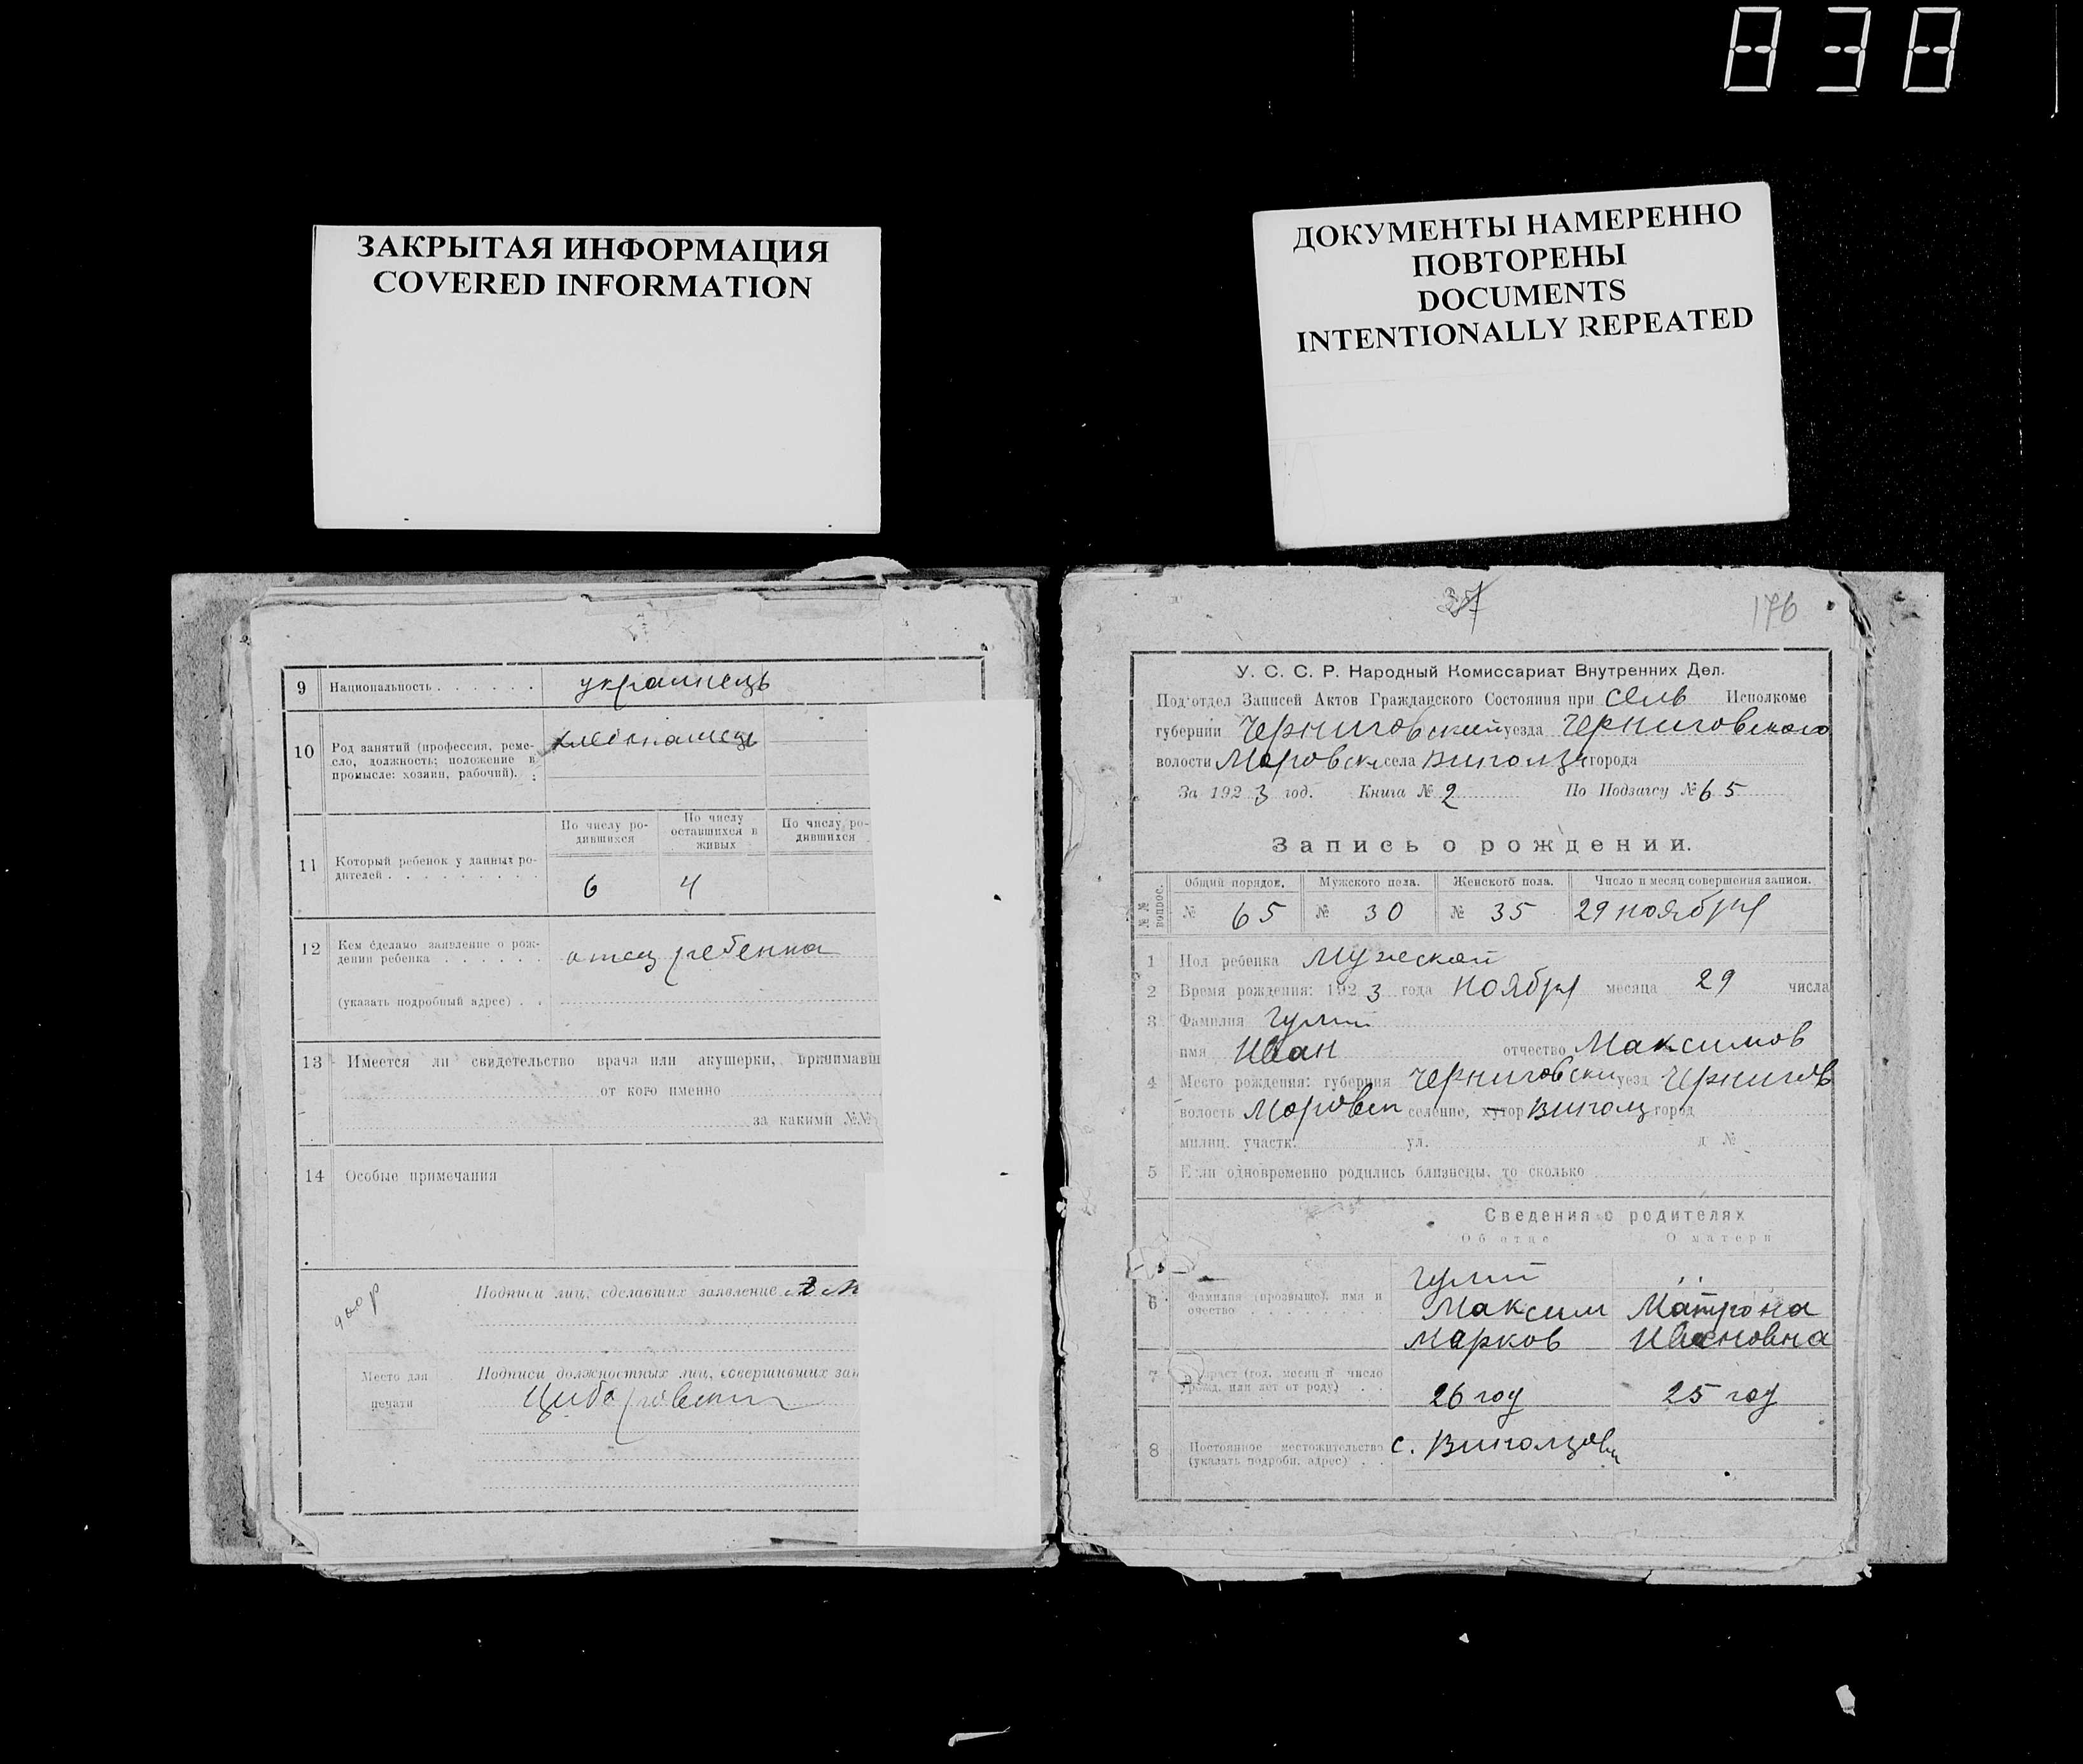 838
ЗАКРЫТАЯ ИНФОРМАЦИЯ
COVERED INFORMATION
ДОКУМЕНТЫ НАМЕРЕННО
ПОВТОРЕНЫ
DOCUMENTS
INTENTIONALLY REPEATED
9 Национальность украинець
10 Род занятий (профессия, реме-
сло, должность; положение в
промысле: хозяин, рабочий).
По числу ро-
дившихся
По числу
оставшихся в
живых
По числу ро-
дившихся
11 Который ребенок у данных ро-
дителей
6 4
12 Кем сделано заявление о рож-
дении ребенка отец ребенка
(указать подробный адрес)
13 Имеется ли свидетельство врача или акушерки,
от кого именно
за какими №№
14 Особые примечания
Подписи лиц, сделавших заявление
Подписи должностных лиц, совершивших
Место для
печати
37
176
У. С. С. Р. Народный Комиссариат Внутренних Дел.
Под'отдел Записей Актов Гражданского Состояния при сель Исполкоме
губернии Черниговский уезда Черниговского
волости Моровск села города
За 1923 год. Книга № 2 По Подзагсу № 65
Запись о рождении.
№№ вопрос.
Общий порядок. Мужского пола. Женского пола. Число и месяц совершения записи.
№ 65 № 30 № 35 29 ноября
1 Пол ребенка Мужской
2 Время рождения: 1923 года Ноября месяца 29 числа
3 Фамилия Гулий
имя Иван отчество Максимов
4 Место рождения: губерния Черниговски уезд Чернигов
волость Моровск селение, хутор город
милиц. участк. ул. д №
5 Если одновременно родились близнецы, то сколько
Сведения о родителях
Об отце О матери
6 Фамилия (прозвище), имя и
отчество
Гулий "
Максим Матрона
Марков Ивановна
7 Возраст (год, месяц и число
рожд. или лет от роду)
26 год 25 год
8 Постоянное местожительство
(указать подробн. адрес)
с.